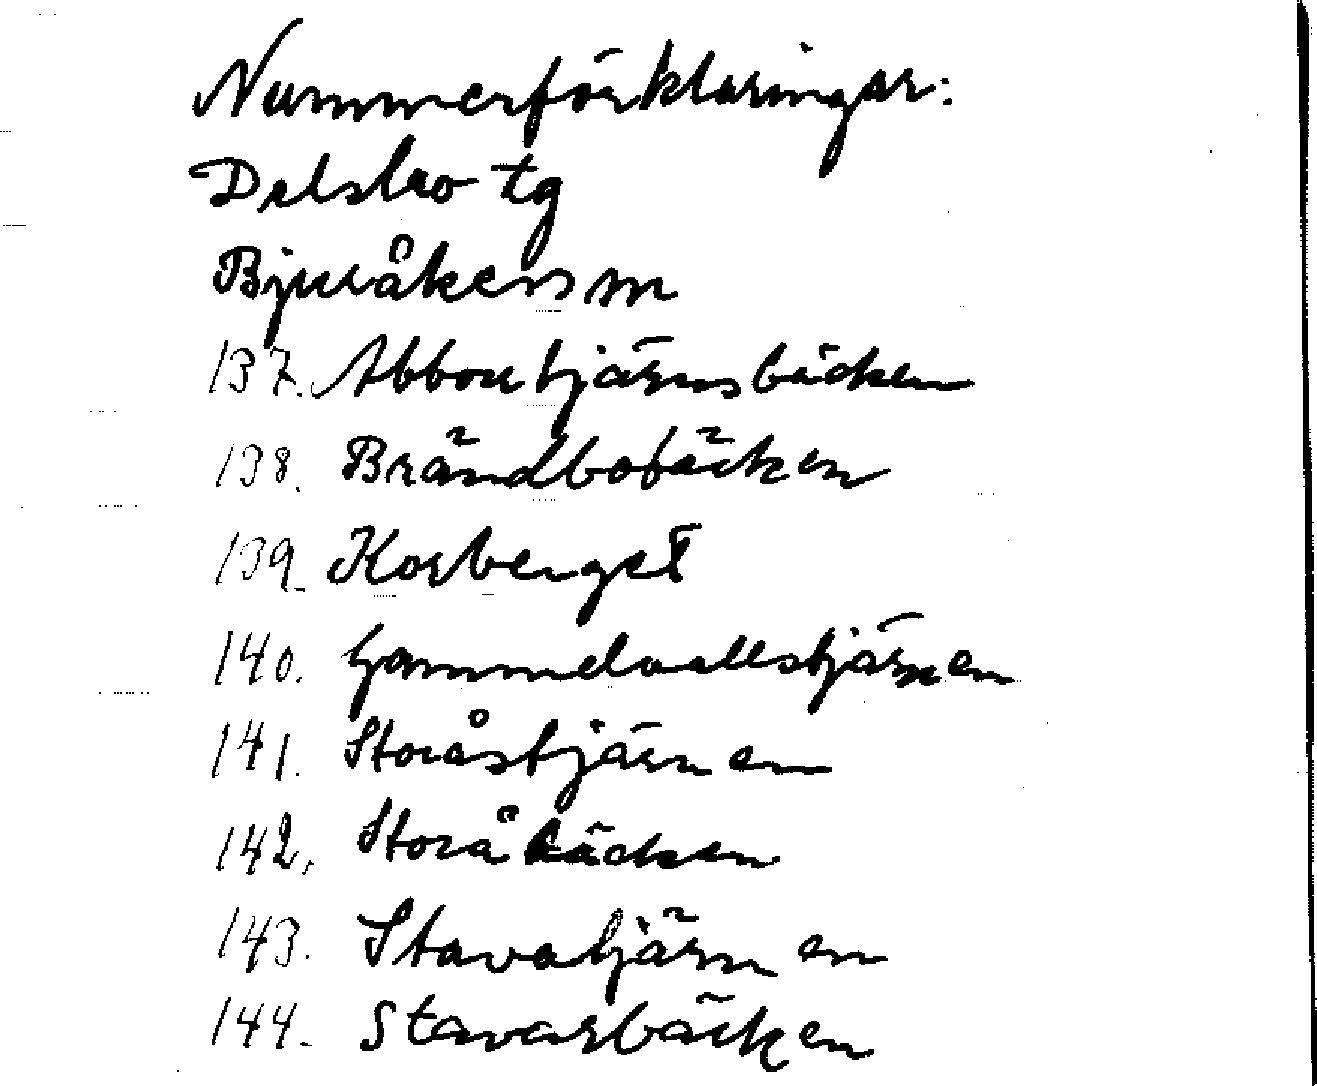 Nummerförklaringar:
Delsbo tg
Bjuråkers sn
137. Abborrtjärnsbäcken
138. Brändbobäcken
139. Korberget
140. Gammelvallstjärnen
141. Storåstjärnen
142. Storåbäcken
143. Stavatjärnen
144. Stavarbäcken